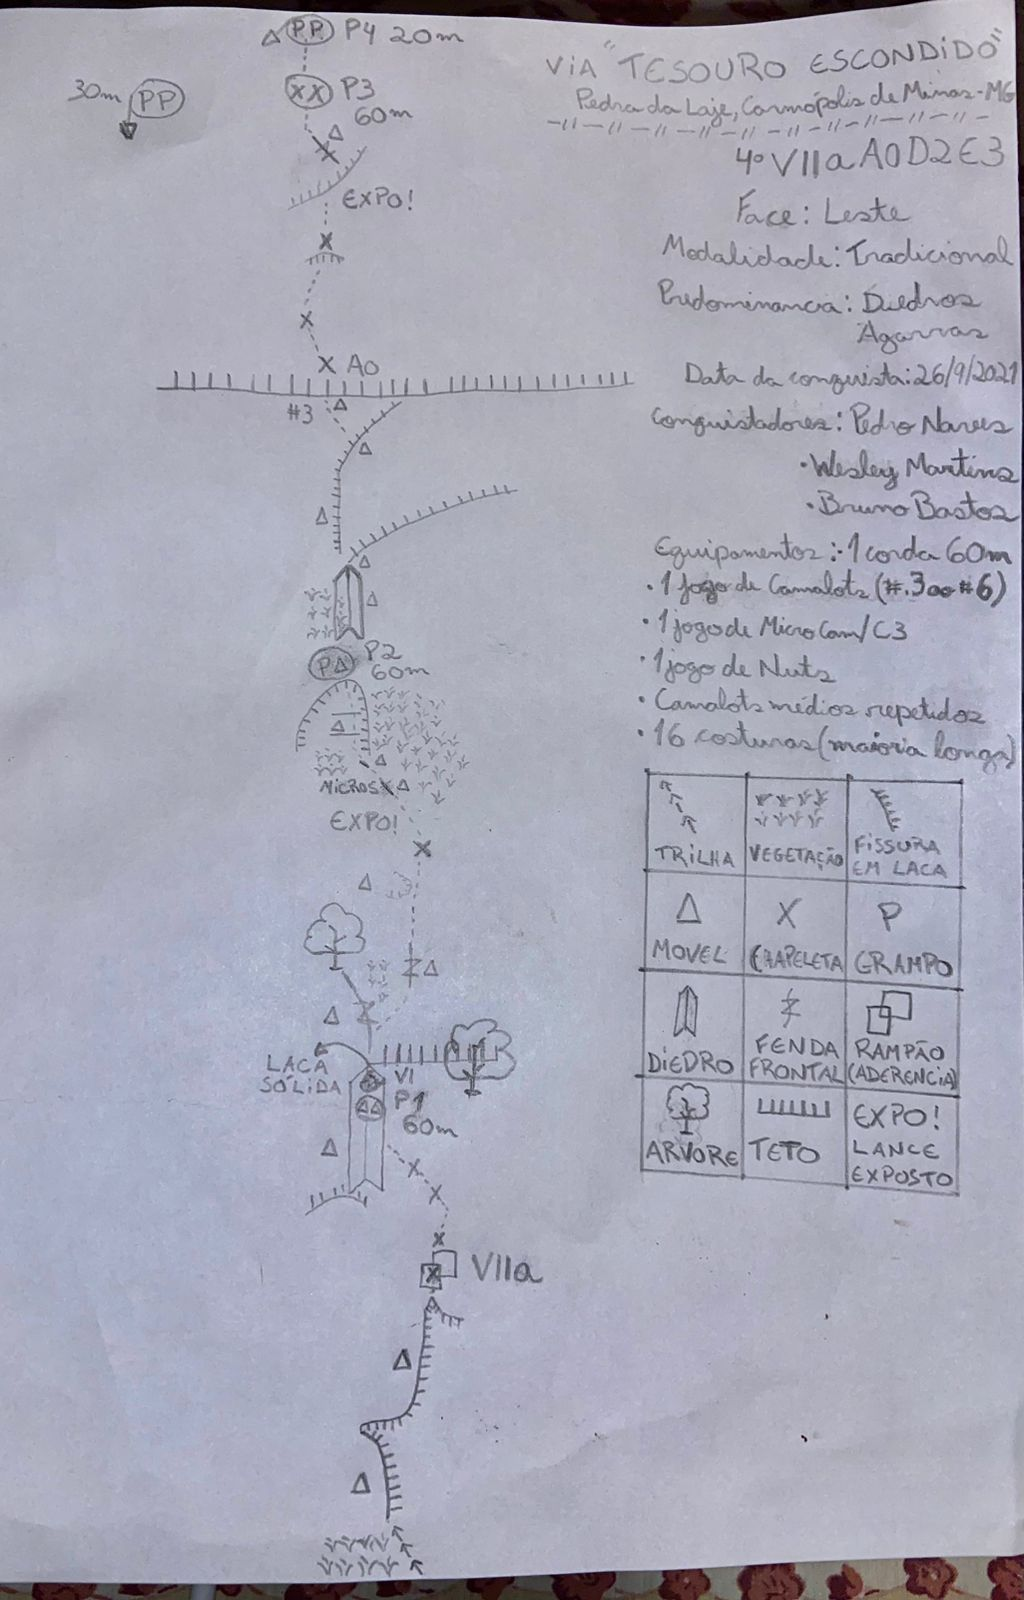 PP P4 20m
30m PP
XX P3
60m
EXPO!
A0
#3
PΔ P2
60m
MICROS
EXPO!
LACA
SÓLIDA
VI
P1
60m
VIIa
VIA "TESOURO ESCONDIDO"
Pedra da Laje, Carmópolis de Minas-MG
4º VIIa A0 D2 E3
Face: Leste
Modalidade: Tradicional
Predominancia: Diedros
Agarras
Data da conquista: 26/9/2021
Conquistadores: Pedro Naves
• Wesley Martins
• Bruno Bastos
Equipamentos: • 1 corda 60m
• 1 jogo de Camalots (#.3 ao #6)
• 1 jogo de MicroCam/C3
• 1 jogo de Nuts
• Camalots médios repetidos
• 16 costuras (maioria longa)
TRILHA VEGETAÇÃO FISSURA
EM LACA
Δ X P
MOVEL CHAPELETA GRAMPO
DIEDRO FENDA
FRONTAL RAMPÃO
(ADERENCIA)
ARVORE TETO EXPO!
LANCE
EXPOSTO